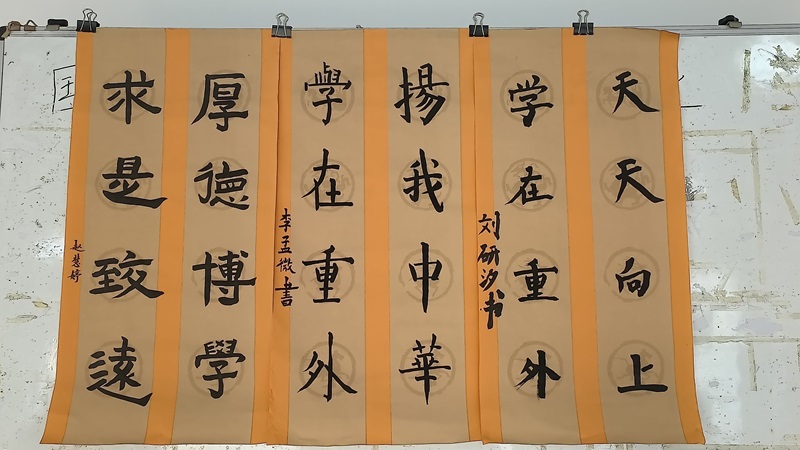 天天向上
学在重外
刘研汐书
揚我中華
學在重外
李孟微書
厚德博學
求是致遠
赵慧婷